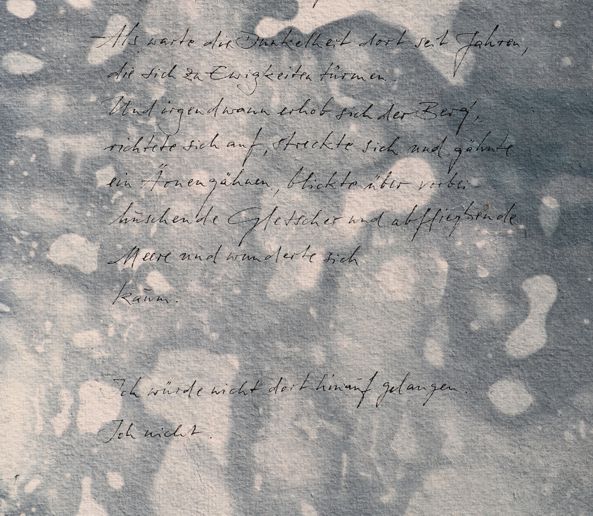 Als warte die Dunkelheit dort seit Jahren,
die sich zu Ewigkeiten türmen
Und irgendwann erhob sich der Berg,
richtete sich auf, streckte sich und gähnte
ein Äonengähnen, blickte über vorbei
huschende Gletscher und abfliegende
Meere und wunderte sich
kaum.
Ich würde nicht dort hinauf gelangen.
Ich nicht.